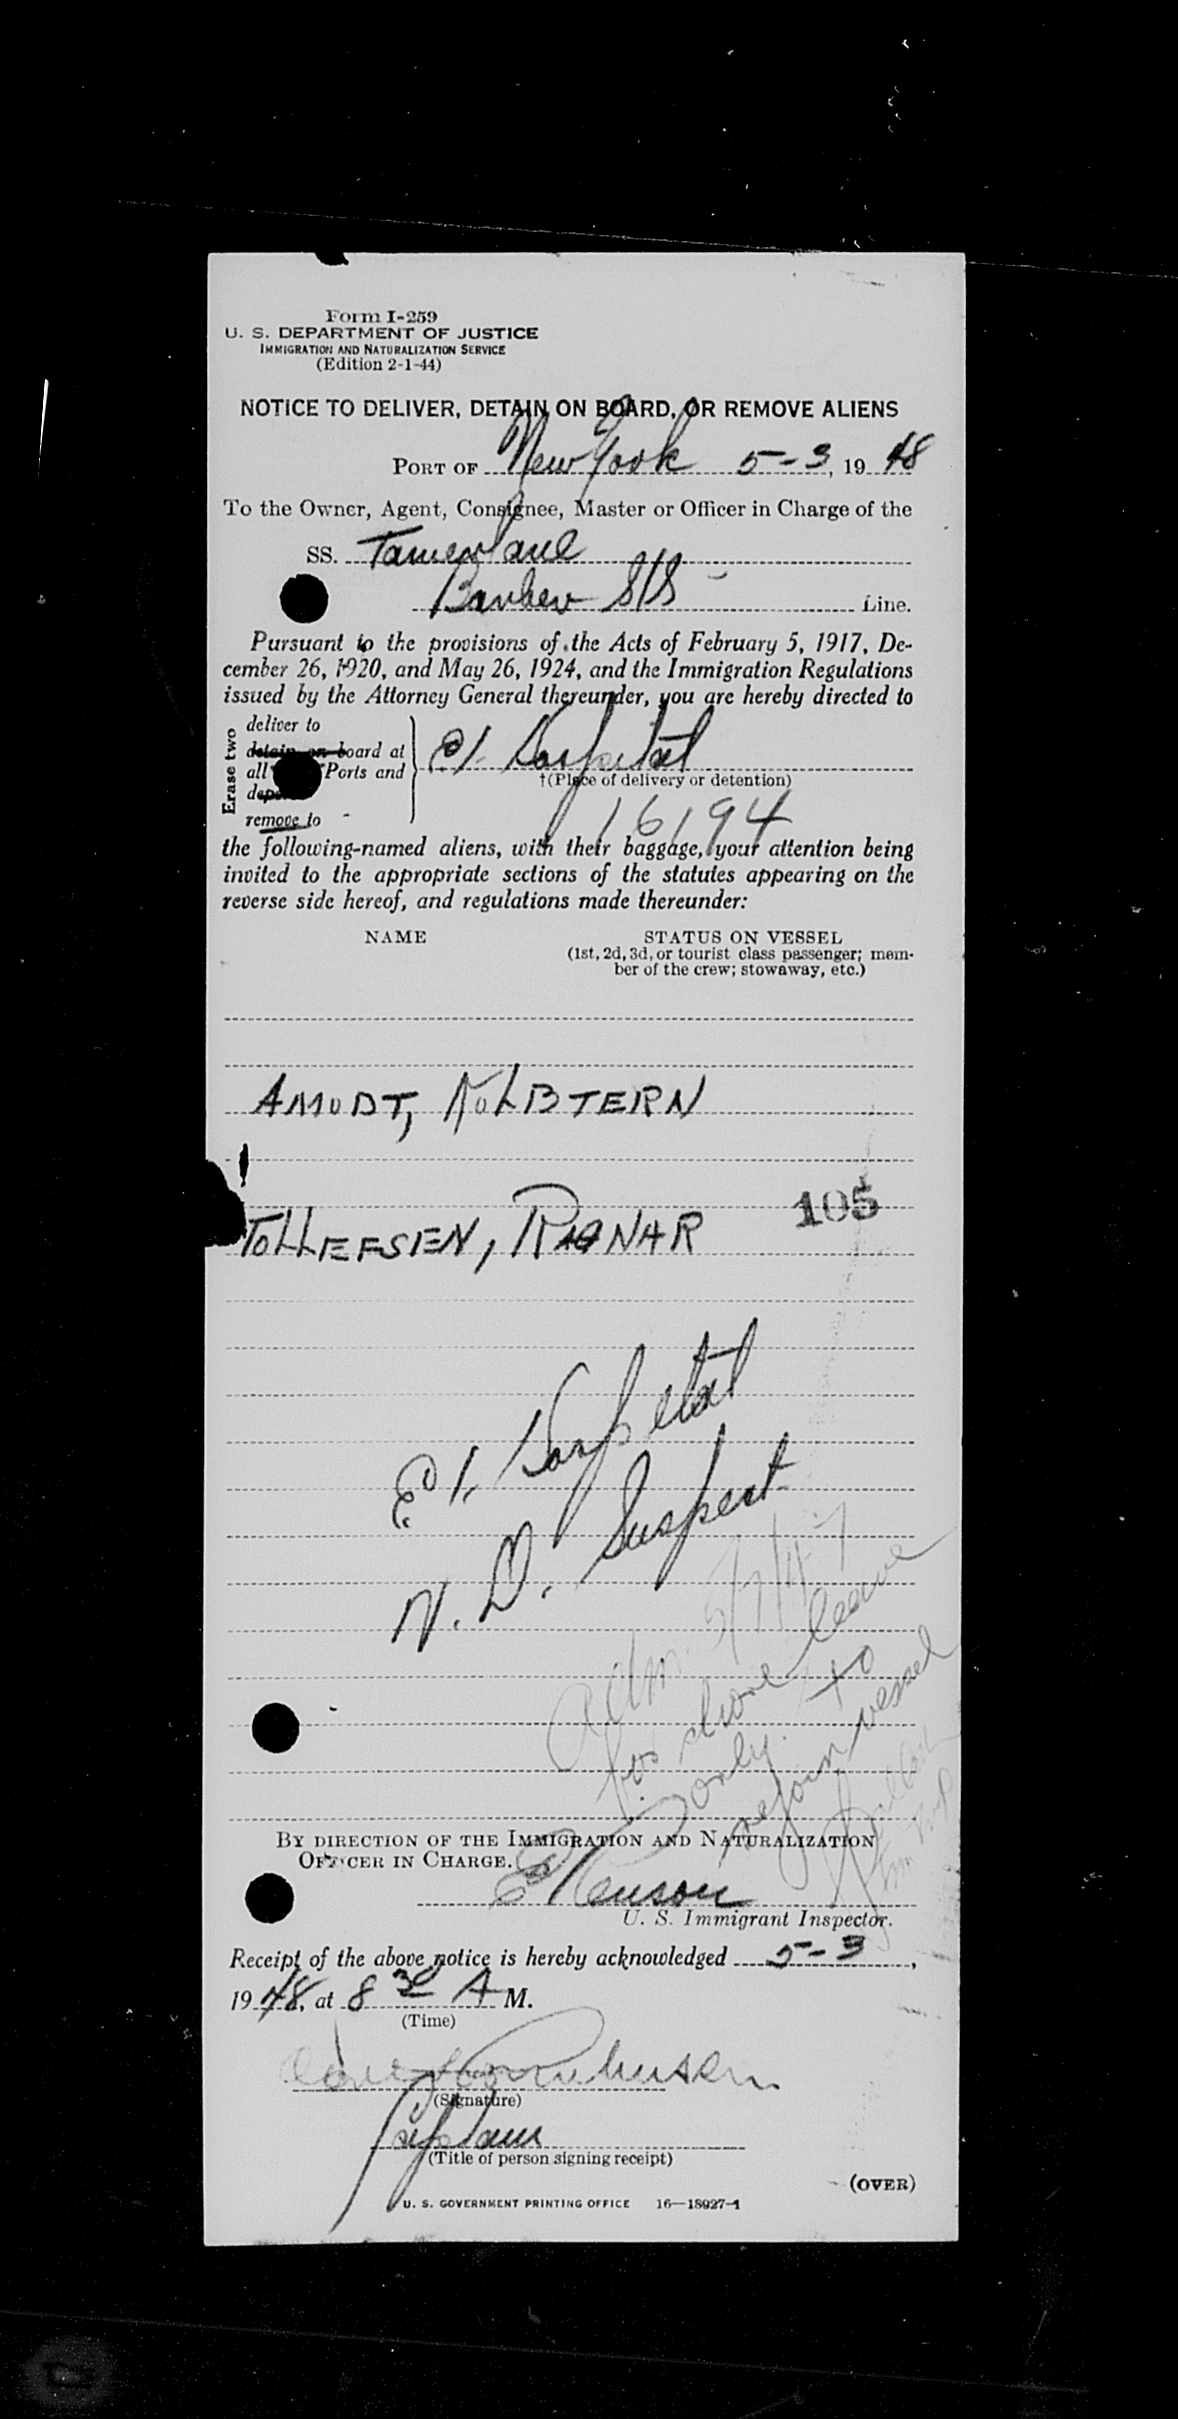 Form I-259
U. S. DEPARTMENT OF JUSTICE
IMMIGRATION AND NATURALIZATION SERVICE
(Edition 2-1-44)
NOTICE TO DELIVER, DETAIN ON BOARD, OR REMOVE ALIENS
PORT OF New York 5-3, 1948
To the Owner, Agent, Consignee, Master or Officer in Charge of the
SS. Tamerlane
Barber S/S Line.
Pursuant to the provisions of the Acts of February 5, 1917, De-
cember 26, 1920, and May 26, 1924, and the Immigration Regulations
issued by the Attorney General thereunder, you are hereby directed to
Erase two
deliver to
detain on board at
all Ports and
remove to
E. I. Hospital
†(Place of delivery or detention)
16194
the following-named aliens, with their baggage, your attention being
invited to the appropriate sections of the statutes appearing on the
reverse side hereof, and regulations made thereunder:
NAME STATUS ON VESSEL
(1st, 2d, 3d, or tourist class passenger; mem-
ber of the crew; stowaway, etc.)
AMUDT, KOLBTERN
105
TOLLEFSEN, RAGNAR
E. I. Hospital
V. D. Suspect
Adm.
for shore leave
only. to
rejoin vessel
BY DIRECTION OF THE IMMIGRATION AND NATURALIZATION
OFFICER IN CHARGE.
U. S. Immigrant Inspector.
Receipt of the above notice is hereby acknowledged 5-3,
1948, at 8 30 A M.
(Time)
(Signature)
(Title of person signing receipt)
(OVER)
U. S. GOVERNMENT PRINTING OFFICE 16—18927-1